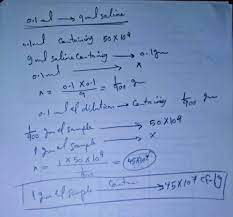 0.1 ml → 9 ml saline
0.1 ml containing 50 x 10⁴
9 ml saline containing → 0.1 gm
0.1 ml → x
x = 0.1 x 0.1 / 9 = 1/900 gm
0.1 ml of dilution → containing 1/900 gm
1/900 gm of sample → 50 x 10⁴
1 gm of sample → x
x = 1 x 50 x 10⁴ / 1/900 = 45 x 10⁷
1 gm of sample → 45 x 10⁷ cfu/g